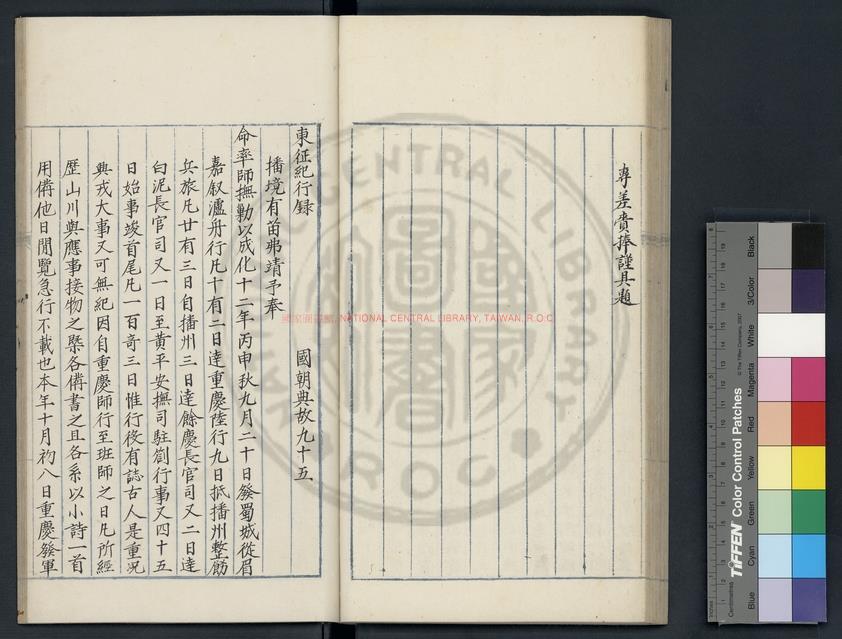 專差賫捧謹具題
東征紀行錄
國朝典故九十五
播境有苗弗靖予奉
命率師撫勦以成化十二年丙申秋九月二十日發蜀城從眉
嘉叙瀘舟行凡十有二日達重慶陸行九日抵播州整飭
兵旅凡廿有三日自播州三日達餘慶長官司又二日達
白泥長官司又一日至黄平安撫司駐劄行事又四十五
日始事竣首尾凡一百竒三日惟行役有誌古人是重况
興戎大事又可無紀因自重慶師行至班師之日凡所經
歷山川與應事接物之槩各備書之且各系以小詩一首
用備他日閒覽急行不載也本年十月初八日重慶發軍
國家圖書館, NATIONAL CENTRAL LIBRARY, TAIWAN, R.O.C
NATIONAL CENTRAL LIBRARY
R.O.C
TIFFEN Color Control Patches
© The Tiffen Company, 2007
Centimetres
Inches
Blue
Cyan
Green
Yellow
Red
Magenta
White
3/Color
Black